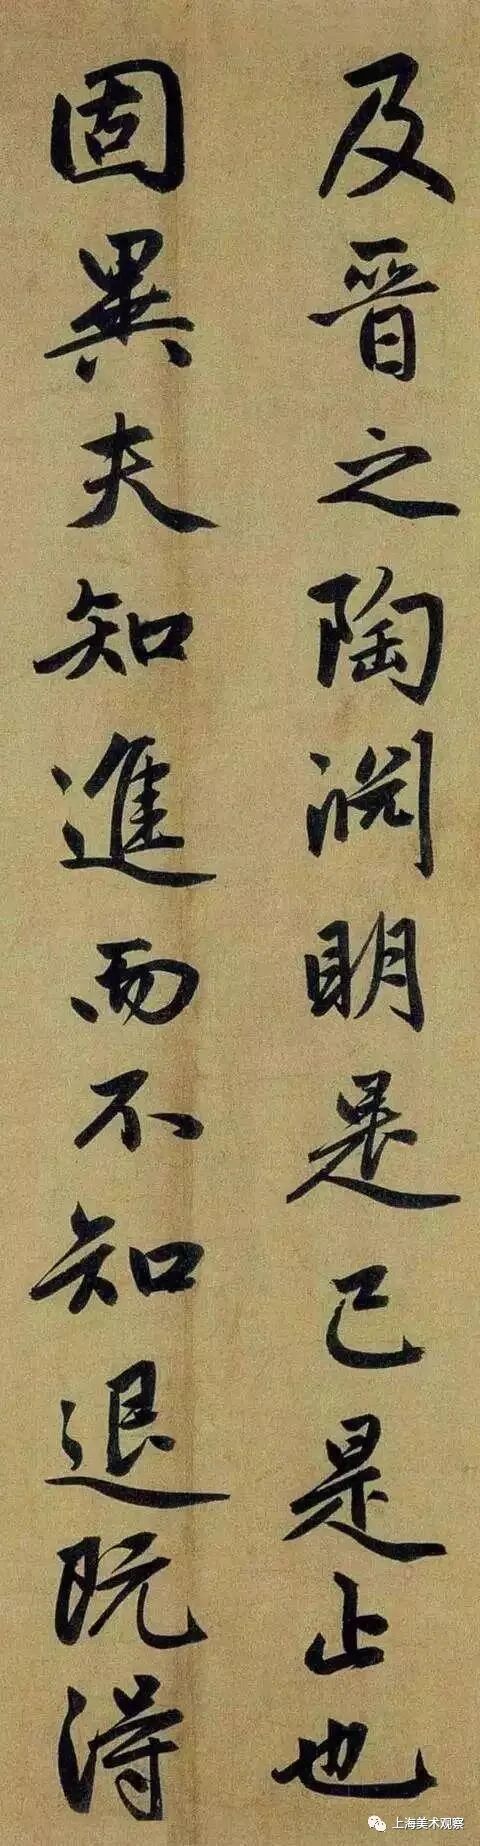 及晋之陶淵明是已是止也
固異夫知進而不知退既得
上海美术观察